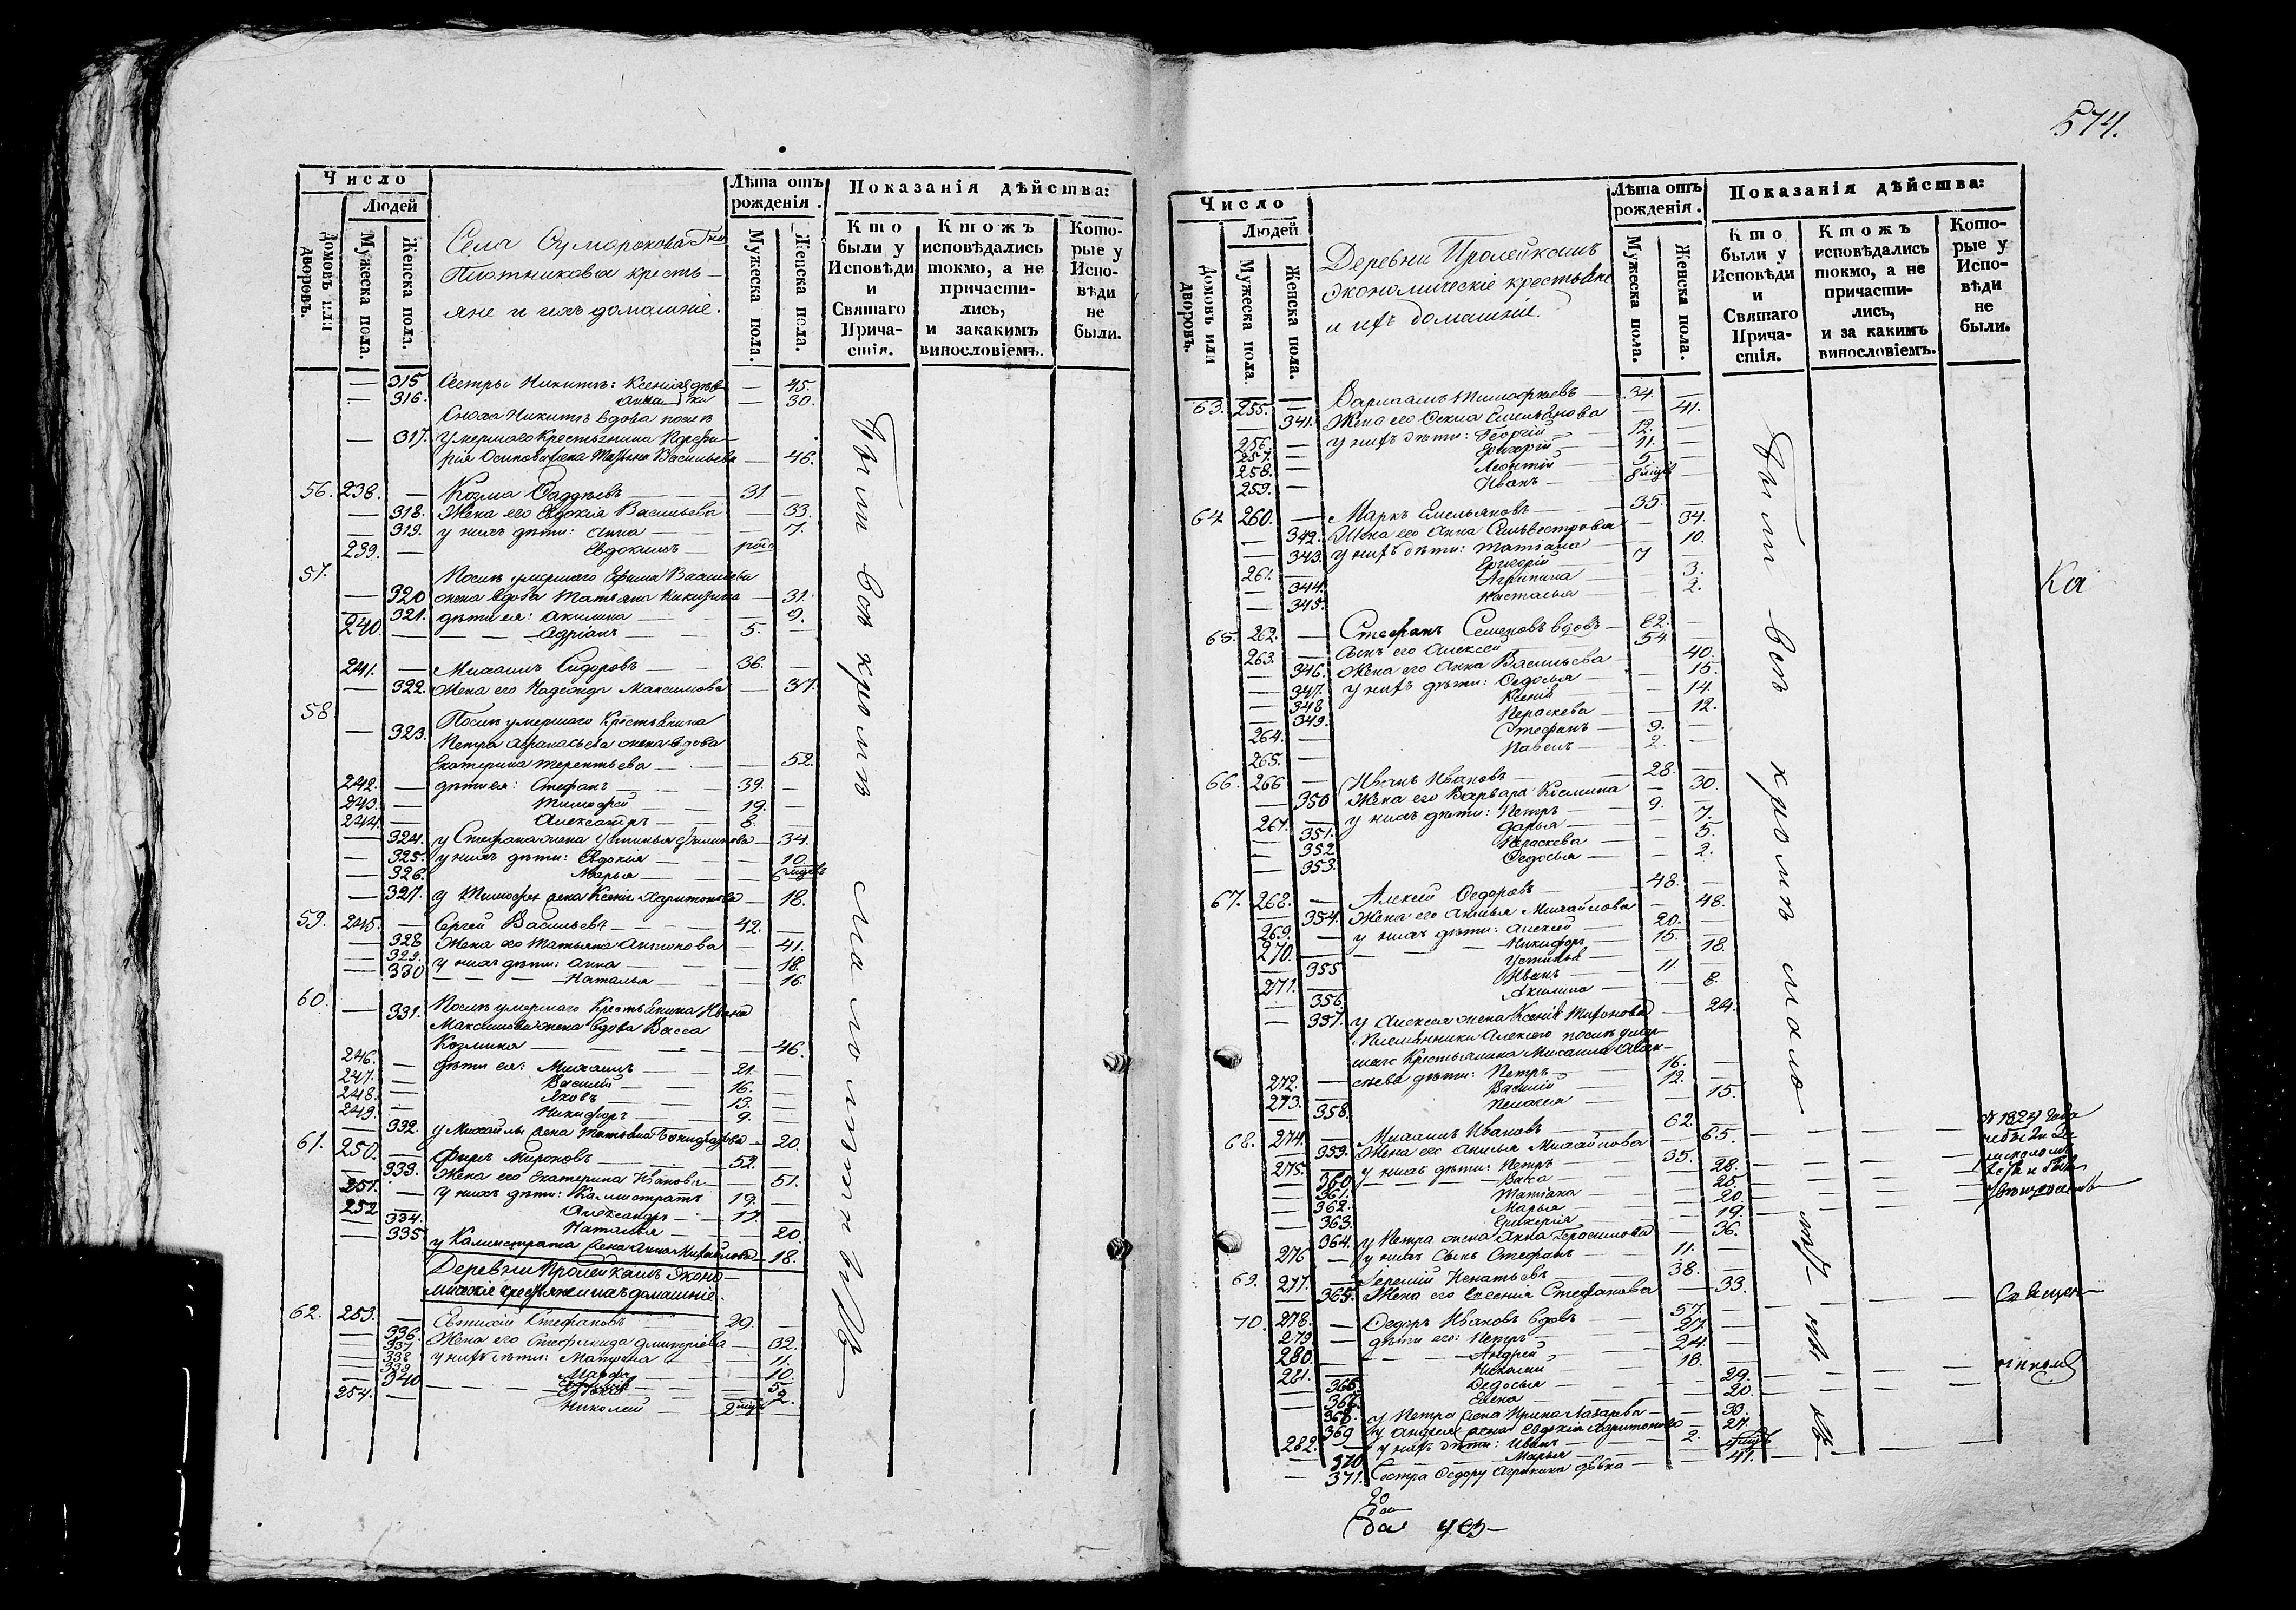 Число
Людей
Домовъ или дворовъ.
Мужеска пола.
Женска пола.
Села Сумарокова Гна
Плотникова кресть-
яне и ихъ домашніе.
Лѣта отъ рожденія.
Мужеска пола.
Женска пола.
Показанія дѣйства:
Кто были у Исповѣди и Святаго Причастія.
Ктожъ исповѣдались токмо, а не причастились, и закакимъ винословіемъ.
Которые у Исповѣди не были.
— 315 Сестры Никиты: Ксения дѣв — 45.
— 316. Анна ки — 30.
Сноха Никиты вдова послѣ
— 317. умершаго Крестьянина
Осипова жена Васильева — 46.
56. 238. — Козма Фаддѣевъ — 31. —
— 318. Жена его Евдокия Васильева — 33.
— 319. у нихъ дѣти: Анна — 7.
239. — Евдокимъ —
57. Послѣ умершаго Ефима Васильева
— 320 жена вдова Татьяна Никитина — 31.
— 321. дѣти ея: Акилина — 9.
240. — Адріанъ — 5. —
241. — Михаилъ Сидоровъ — 36. —
— 322. Жена его Надежда Максимова — 37.
58. — 323. Послѣ умершаго Крестьянина
Петра Афанасьева жена вдова
Екатерина Терентьева — 52.
242. — дѣти ея: Стефанъ — 39. —
243. — Тимофей — 19. —
244. — Александръ — 8. —
— 324. у Стефана жена Устинья — 34.
— 325. у нихъ дѣти: Евдокия — 10.
— 326. Марья —
— 327. у Тимофея жена Ксения Харитонова — 18.
59. 245. — Сергей Васильевъ — 42. —
— 328 Жена его Татьяна Антонова — 41.
— 329. у нихъ дѣти: Анна — 18.
— 330 Наталья — 16.
60. — 331. Послѣ умершаго Крестьянина Ивана
Максимова жена вдова Васса
Козмина — 46.
246. — дѣти ея: Михаилъ — 21. —
247. — Василій — 16. —
248. — Яковъ — 13. —
249. — Никифоръ — 9. —
— 332. у Михайлы жена Татьяна — 20.
61. 250. — Мироновъ — 52. —
— 333. Жена его Екатерина Иванова — 51.
251. — у нихъ дѣти: Калистратъ 19. —
252 — Александръ — 17. —
— 334. Наталья — 20.
— 335. у Калистрата жена Анна — 18.
Деревни Пролейкаши эконо-
мическіе крестьяне и ихъ домашніе.
62. 253. — Стефановъ — 29. —
— 336. Жена его Стефанида Дмитріева — 32.
— 337 у нихъ дѣти: Матрона — 11.
— 338 Марфа — 10.
— 339 — 5.
— 340 — 2.
254. — Николай — 2
были вси кромѣ малолѣтныхъ
574.
Число
Людей
Домовъ или дворовъ.
Мужеска пола.
Женска пола.
Деревни Пролейкаши
экономическіе крестьяне
и ихъ домашніе.
Лѣта отъ рожденія.
Мужеска пола.
Женска пола.
Показанія дѣйства:
Кто были у Исповѣди и Святаго Причастія.
Ктожъ исповѣдались токмо, а не причастились, и за какимъ винословіемъ.
Которые у Исповѣди не были.
63. 255. — Варлаамъ Тимофѣевъ — 34. —
— 341. Жена его Фекла Емельянова — 41.
256. — у нихъ дѣти: Георгій — 12. —
257. — Григорій — 11. —
258. — Леонтій — 5. —
259. — Иванъ — 8 мцъ —
64. 260. — Маркъ Емельяновъ — 35. —
— 342. Жена его Анна Сильвестрова — 34.
— 343. у нихъ дѣти: Татіана — 10.
261. — Григорій — 7 —
— 344. Агрипина — 3.
— 345. Настасья — 2.
65. 262. — Стефанъ Семеновъ вдовъ — 82. —
263. — сынъ его Алексей — 54. —
— 346. Жена его Анна Васильева — 40.
— 347. у нихъ дѣти: Федосья — 15.
— 348 Ксенія — 14.
— 349. Пераскева — 12.
264. — Стефанъ — 9. —
265. — Павелъ — 2. —
66. 266 — Иванъ Ивановъ — 28. —
— 350 Жена его Варвара Козмина — 30.
267. — у нихъ дѣти: Петръ — 9. —
— 351. Дарья — 7.
— 352 Пераскева — 5.
— 353. Федосья — 2.
67. 268. — Алексей Федоровъ — 48. —
— 354. Жена его Анисья Михайлова — 48.
269. — у нихъ дѣти: Алексей — 20. —
270. — Никифоръ — 15. —
— 355 Устинья — 18.
271. — Иванъ — 11. —
— 356. Акилина — 8.
— 357. у Алексея жена Ксенія — 24.
Племянники Алексею послѣ умер-
шаго Крестьянина Михаила Алек-
272. — сѣева дѣти: Петръ — 16. —
273. — Василій — 12. —
— 358. Пелагея — 15.
68. 274. — Михаилъ Ивановъ — 62. —
— 359. Жена его Анисья Михайлова — 65.
275. — у нихъ дѣти: Петръ — 35. —
— 360 Васса — 28.
— 361. Татіана — 25.
— 362. Марья — 20.
— 363. Гликерія — 19.
— 364. у Петра жена Анна Герасимова — 36.
276 — у нихъ сынъ Стефанъ — 11. —
69. 277. — Игнатьевъ — 38. —
— 365. Жена его Евгения Стефанова — 33.
70. 278. — Федоръ Ивановъ вдовъ — 57. —
279. — дѣти его: Петръ — 27. —
280. — Андрей — 24. —
281. — Николай — 18. —
— 366. Федосья — 29.
— 367. Елена — 20.
— 368. у Петра жена Ирина Лазарева — 33.
— 369 у Андрея жена Евдокія Харитонова — 27.
282. — у нихъ дѣти: Иванъ — 2. —
— 370. Марья —
— 371. Сестра Федору Агрипина дѣвка — 41.
были вси кромѣ мало
Ка